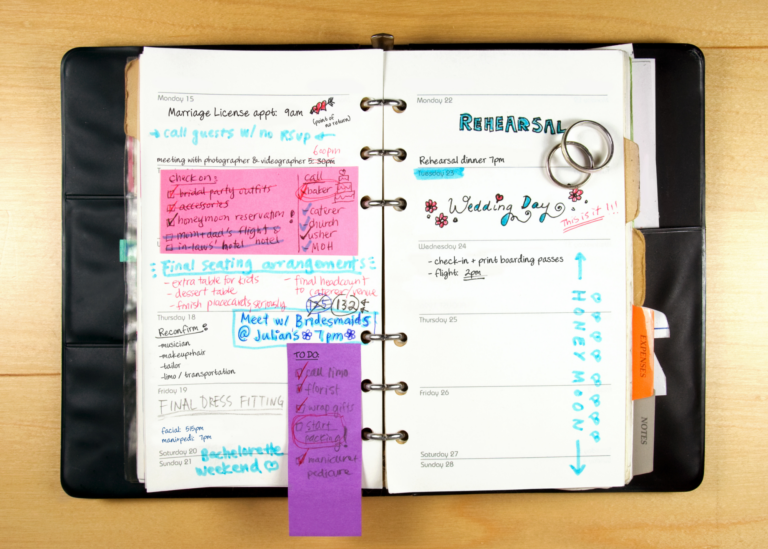 Monday 15
Marriage License appt: 9am
(point of no return)
call guests w/ no RSVP
6:00pm
meeting with photographer & videographer 5:30pm
check on:
bridal party outfits
accessories
honeymoon reservation!
mom+dad's flight
in-laws' hotel hotel
call
baker
caterer
church
usher
MOH
Final seating arrangements
- extra table for kids
- dessert table
- finish placecards seriously
- final headcount
to caterer/venue
125 132
Thursday 18
Meet w/ Bridesmaids
@ Julian's 7pm
Reconfirm
-musician
-makeup+hair
-tailor
-limo / transportation
Friday 19
FINAL DRESS FITTING
facial: 515pm
mani+pedi: 7pm
Saturday 20
Sunday 21
Bachelorette
weekend
TO DO
call limo
florist
wrap gifts
start
packing!
manicure
pedicure
Monday 22
REHEARSAL
Rehearsal dinner 7pm
Tuesday 23
Wedding Day
This is it!!
Wednesday 24
- check-in + print boarding passes
- flight: 2pm
HONEYMOON
Thursday 25
Friday 26
Saturday 27
Sunday 28
EXPENSES
NOTES